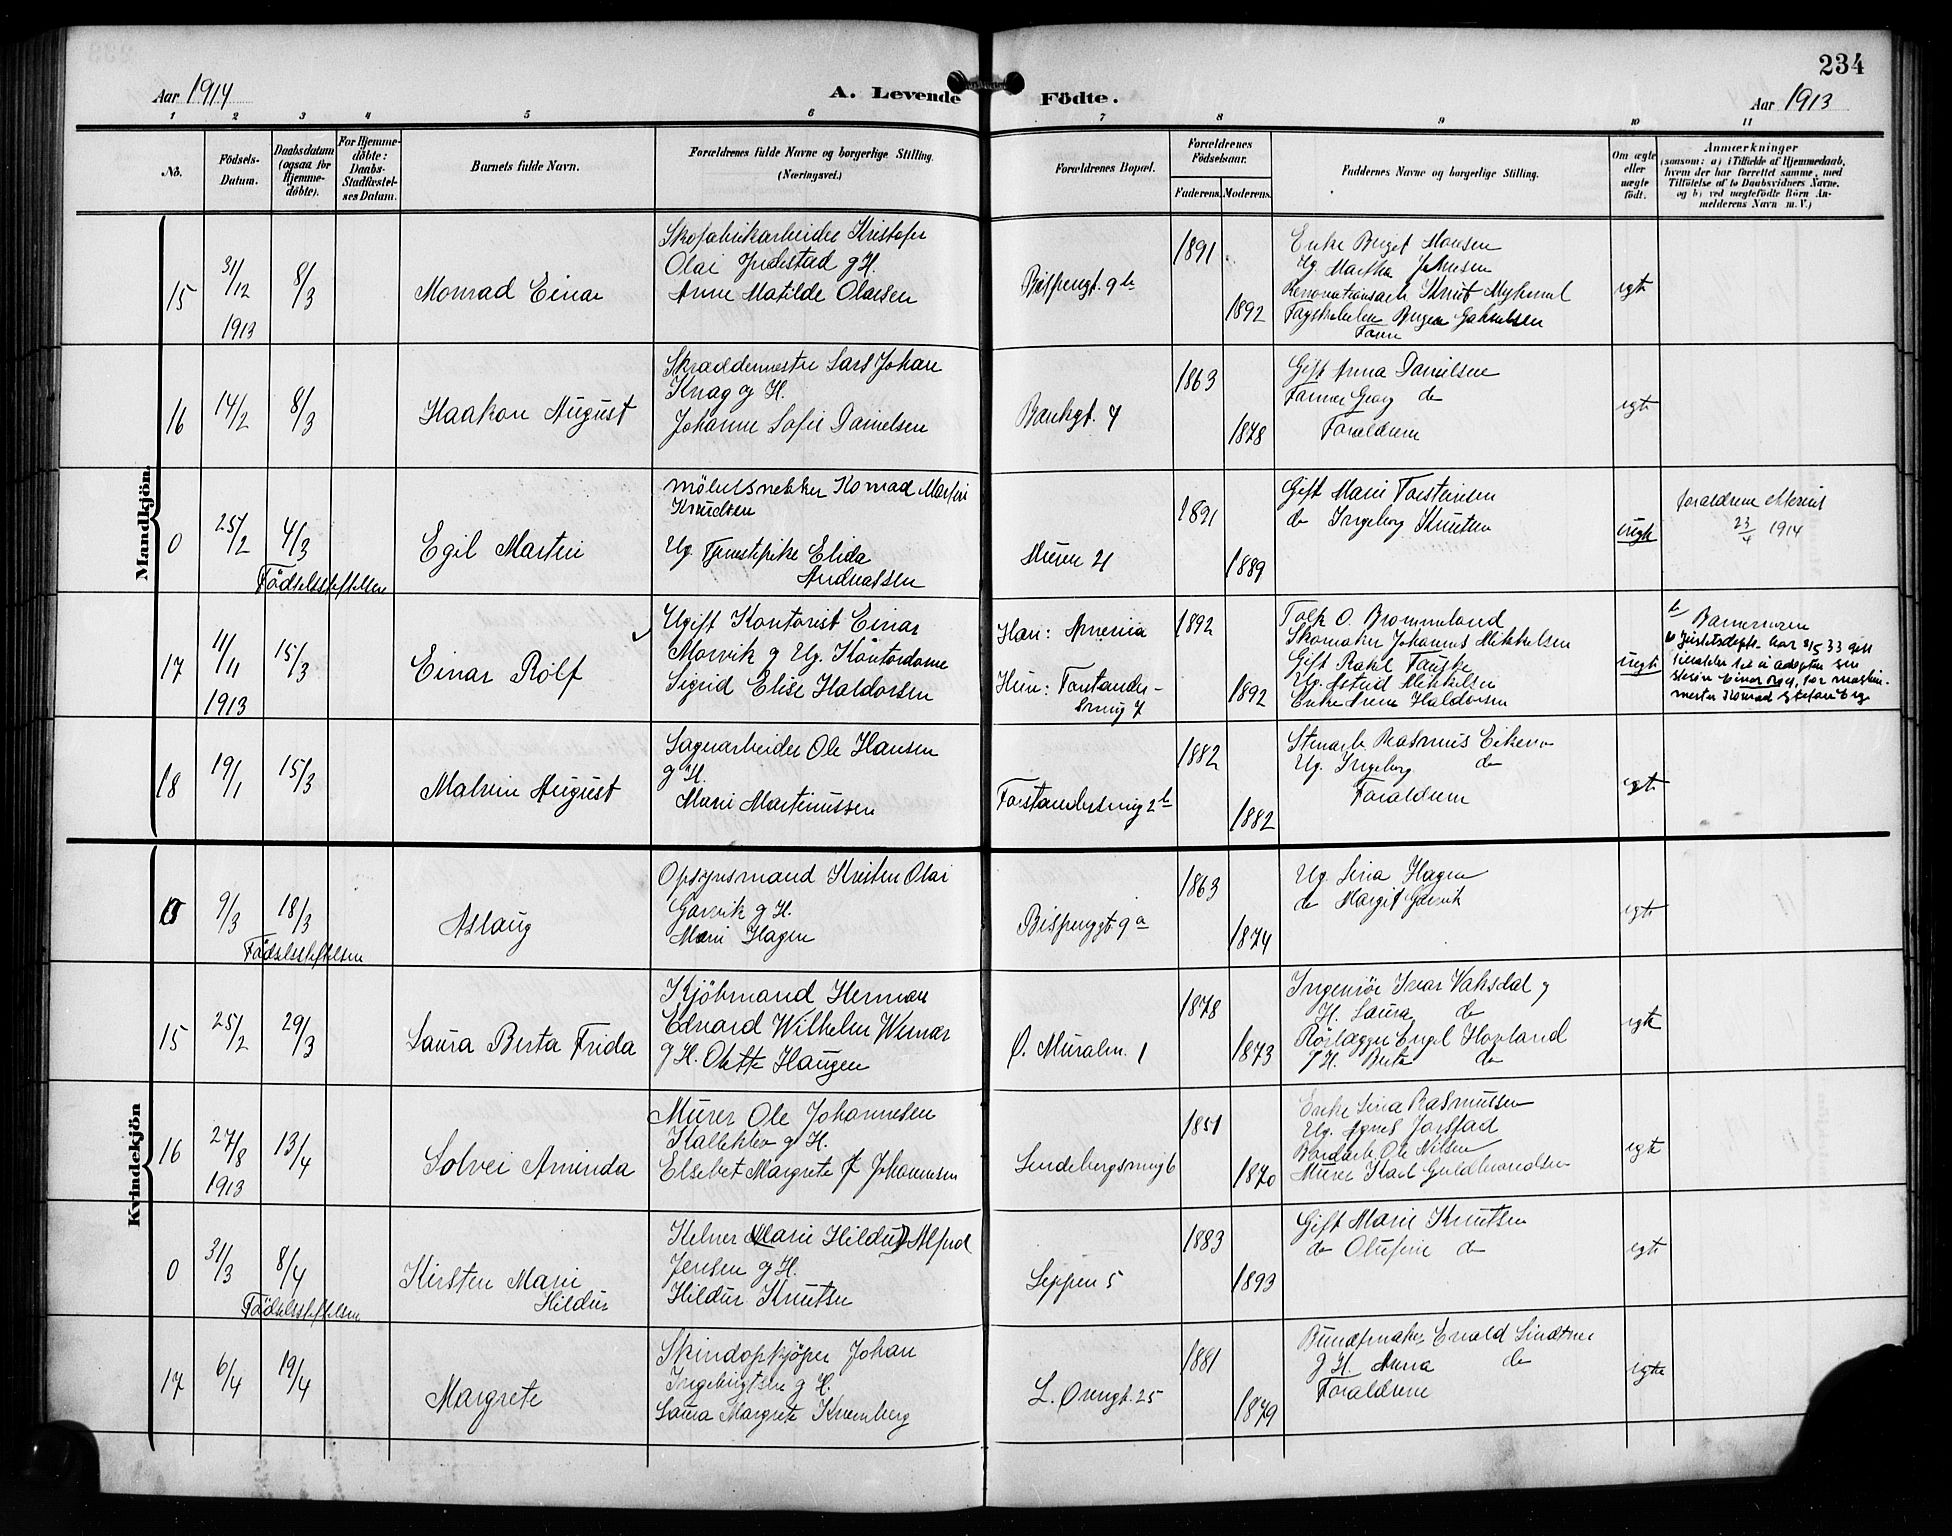 234
Aar 1914
A. Levende Födte.
Aar 1913
1 2 3 4 5 6 7 8 9 10 11
No.
Födsels-
Datum.
Daabsdatum
(ogsaa for
Hjemme-
döbte).
For Hjemme-
döbte:
Daabs-
Stadfæstel-
ses Datum.
Barnets fulde Navn.
Forældrenes fulde Navne og borgerlige Stilling.
(Næringsvei.)
Forældrenes Bopæl.
Forældrenes
Födselsaar.
Faderens.
Moderens.
Faddernes Navne og borgerlige Stilling.
Om ægte
eller
uægte
födt.
Anmærkninger
(saasom: a) i Tilfælde af Hjemmedaab,
hvem der har forrettet samme, med
Tilföielse af to Daabsvidners Navne,
og b) ved uægtefödte Börn An-
melderens Navn m. V.)
Mandkjön.
15
31/12
1913
8/3
Monrad Einar
Skofabrikarbeider Kristofer
Olai g H.
Anne Matilde Olaisen
Bispengt. 9b
1891
1892
Enke Monsen
Ug Martha Johnsen
Knut
Gabrielsen
Faren
egte
16
14/2
8/3
Haakon August
Skræddermester Lars Johan
Knag og H.
Johanne Sofie Danielsen
Bankgt. 4
1863
1878
Gift Anna Danielsen
Farmer Georg do
Forældrene
egte
0
25/2
4/3
Födselsstiftelsen
Egil Martin
Möbelsnekker Konrad Martin
Knudsen
Ug. Tjenestepike Elida
Andreassen
Muren 21
1891
1889
Gift Marie Torsteinsen
do Ingeborg Knutsen
uegte
forældrene ekteviet
23/4 1914
17
11/11
1913
15/3
Einar Rolf
Ugift Kontorist Einar
Morvik g Ug. Kontordame
Sigrid Elise Haldorsen
Han: Amerika
Hun: Forstander-
smug 7
1892
1892
Tolk O. Brommeland
Skomaker Johannes Mikkelsen
Gift Rakel Fauske
Ug. Astrid Mikkelsen
Enke Anna Haldorsen
uegte
Barnemoren
Justitsdept. har 2/5 33 gitt
tilladelse til å adoptere sin
sönn Einar Rolf, for maskin-
mester Konrad Stefan Erg
18
19/1
15/3
Malvin August
Sagarbeider Ole Hansen
g H.
Marie Martinussen
Forstandersmug 2b
1882
1882
Stenarb. Rasmus Eikemo
Ug. Ingeborg do
Forældrene
egte
Kvindekjön
0
9/3
18/3
Födselsstiftelsen
Aslaug
Opsynsmand Kristen Olai
Garvik g H.
Marie Hagen
Bispenggt 9a
1863
1874
Ug. Lina Hagen
do Margit Garvik
egte
15
25/2
29/3
Laura Berta Frida
Kjöbmand Herman
Edvard Wilhelm Werner
g H. Olette Haugen
Ö. Muralm. 1
1878
1873
Ingeniör Ivar Vaksdal g
H. Laura do
Rörlægger Engel Hovland
g H. Berta do
egte
16
27/8
1913
13/4
Solvei Aminda
Murer Ole Johannesen
Halleklev g H.
Elsebet Margrete f Johannesen
Lindebergsmug 6
1851
1870
Enke Lina Rasmussen
Ug. Agnes Jorstad
Ole Nilsen
Murer Karl Guldbrandsen
egte
0
31/3
8/4
Födselsstiftelsen
Kirsten Marie
Hildur
Kelner (Marie Hildur) Alfred
Jensen g H.
Hildur Knutsen
Leppen 5
1883
1893
Gift Marie Knutsen
do Olufine do
egte
17
6/4
19/4
Margrete
Skindopkjöper Johan
Ingebrigtsen g H.
Laura Margrete Kronberg
L. Övregt. 25
1881
1879
Buntmaker Evald Lindtner
g H. Anna do
Forældrene
egte